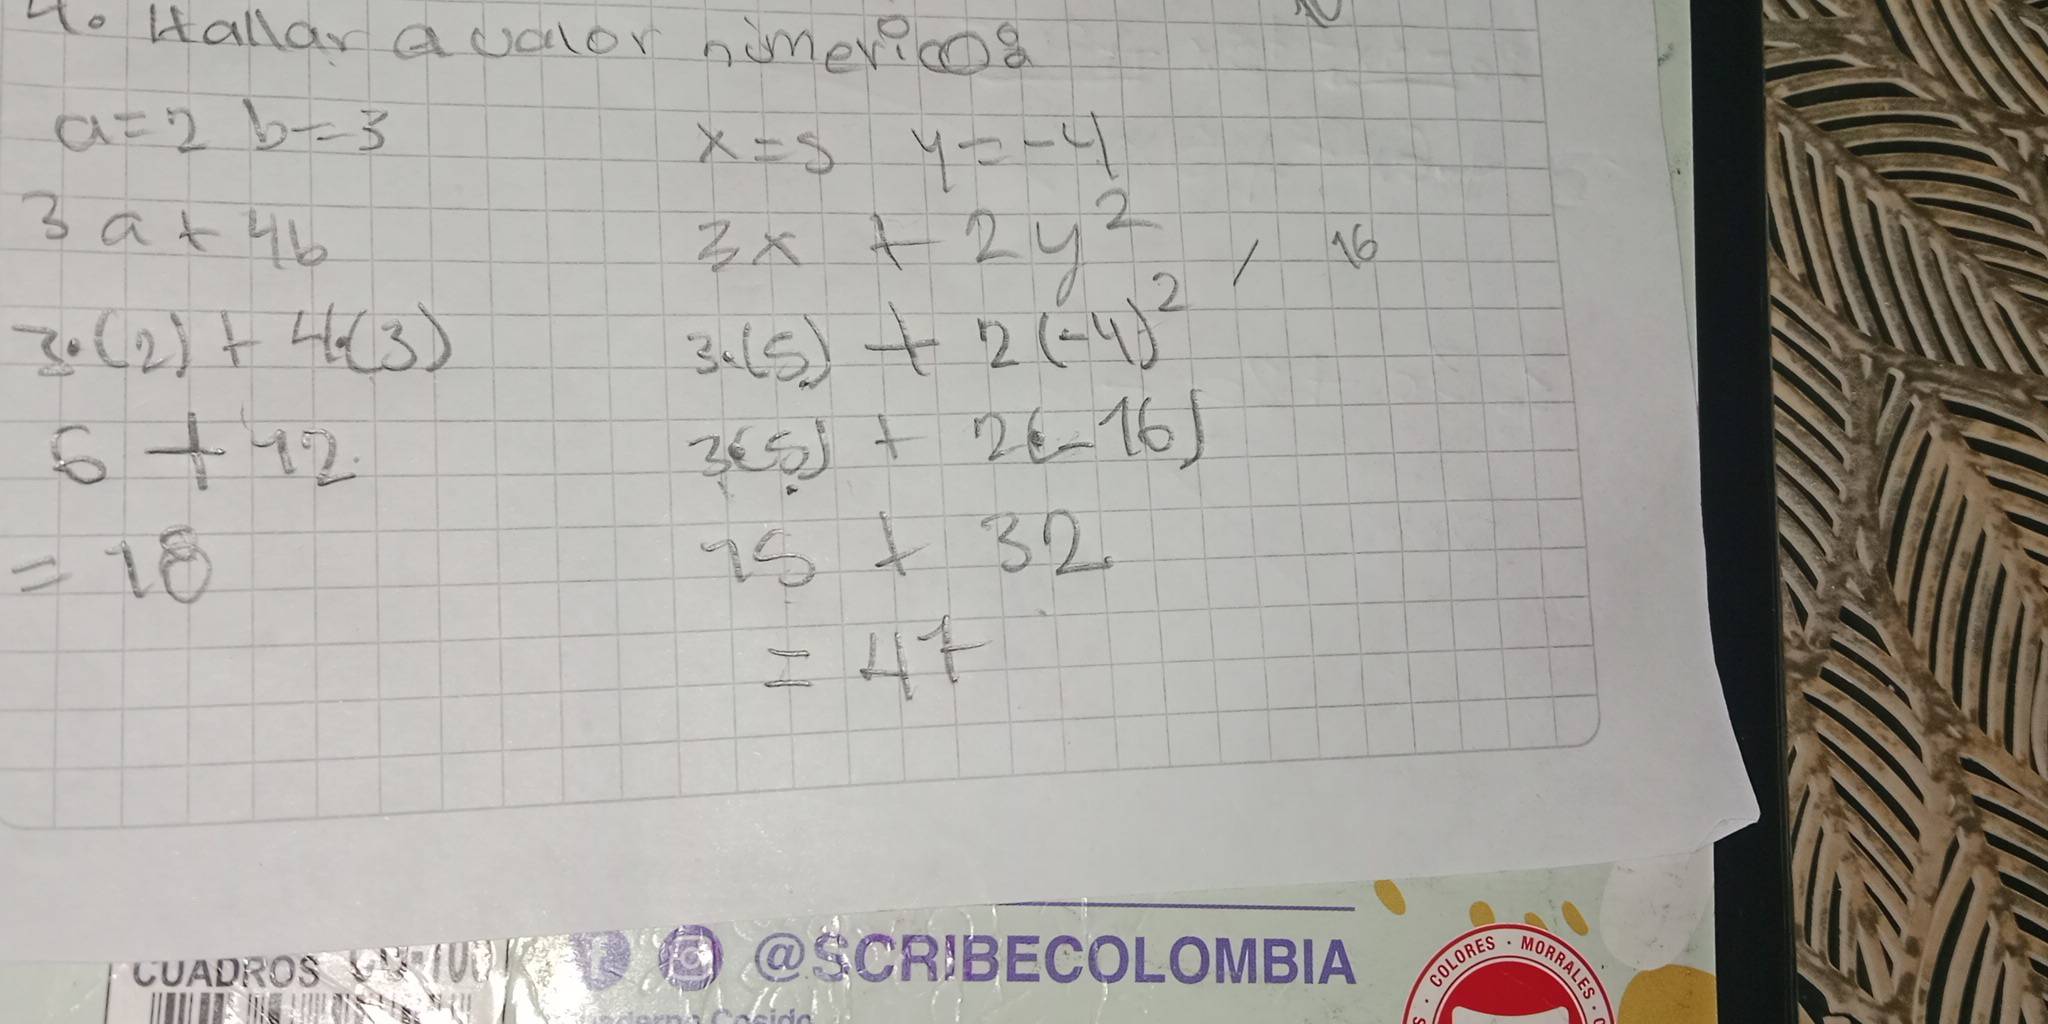 4. Hallar a valor númericos
a=2 b=3
3a+4b
3·(2)+4·(3)
6+12
=18
x=5 y=-4
3x + 2y² , 16
3·(5) + 2(-4)²
3(5) + 2(-16)
15 + 32
= 47
CUADROS
@SCRIBECOLOMBIA
COLORES · MORRALES ·